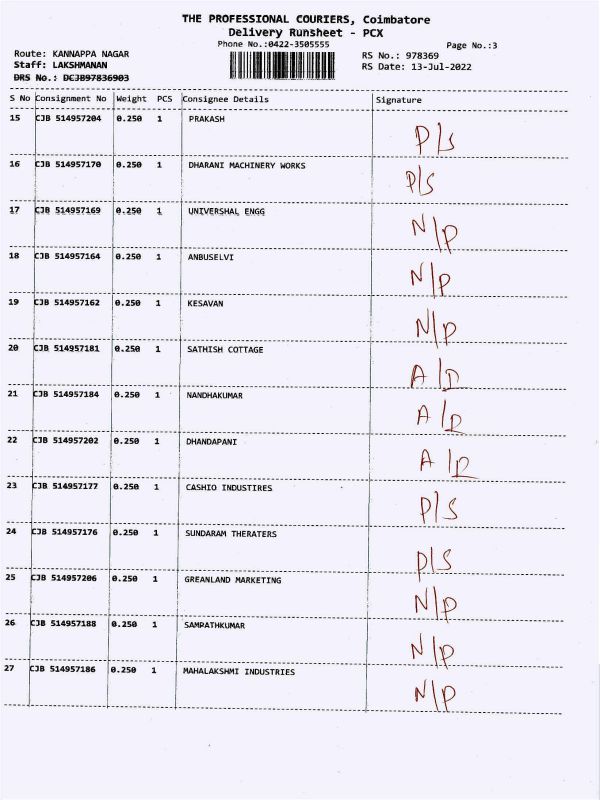 THE PROFESSIONAL COURIERS, Coimbatore
Delivery Runsheet - PCX
Phone No.:0422-3505555 Page No.:3
Route: KANNAPPA NAGAR RS No.: 978369
Staff: LAKSHMANAN RS Date: 13-Jul-2022
DRS No.: DCJB97836903
S No Consignment No Weight PCS Consignee Details Signature
15 CJB 514957204 0.250 1 PRAKASH P/S
16 CJB 514957170 0.250 1 DHARANI MACHINERY WORKS P/S
17 CJB 514957169 0.250 1 UNIVERSHAL ENGG N/P
18 CJB 514957164 0.250 1 ANBUSELVI N/P
19 CJB 514957162 0.250 1 KESAVAN N/P
20 CJB 514957181 0.250 1 SATHISH COTTAGE A/D
21 CJB 514957184 0.250 1 NANDHAKUMAR A/D
22 CJB 514957202 0.250 1 DHANDAPANI A/D
23 CJB 514957177 0.250 1 CASHIO INDUSTIRES P/S
24 CJB 514957176 0.250 1 SUNDARAM THERATERS P/S
25 CJB 514957206 0.250 1 GREANLAND MARKETING N/P
26 CJB 514957188 0.250 1 SAMPATHKUMAR N/P
27 CJB 514957186 0.250 1 MAHALAKSHMI INDUSTRIES N/P